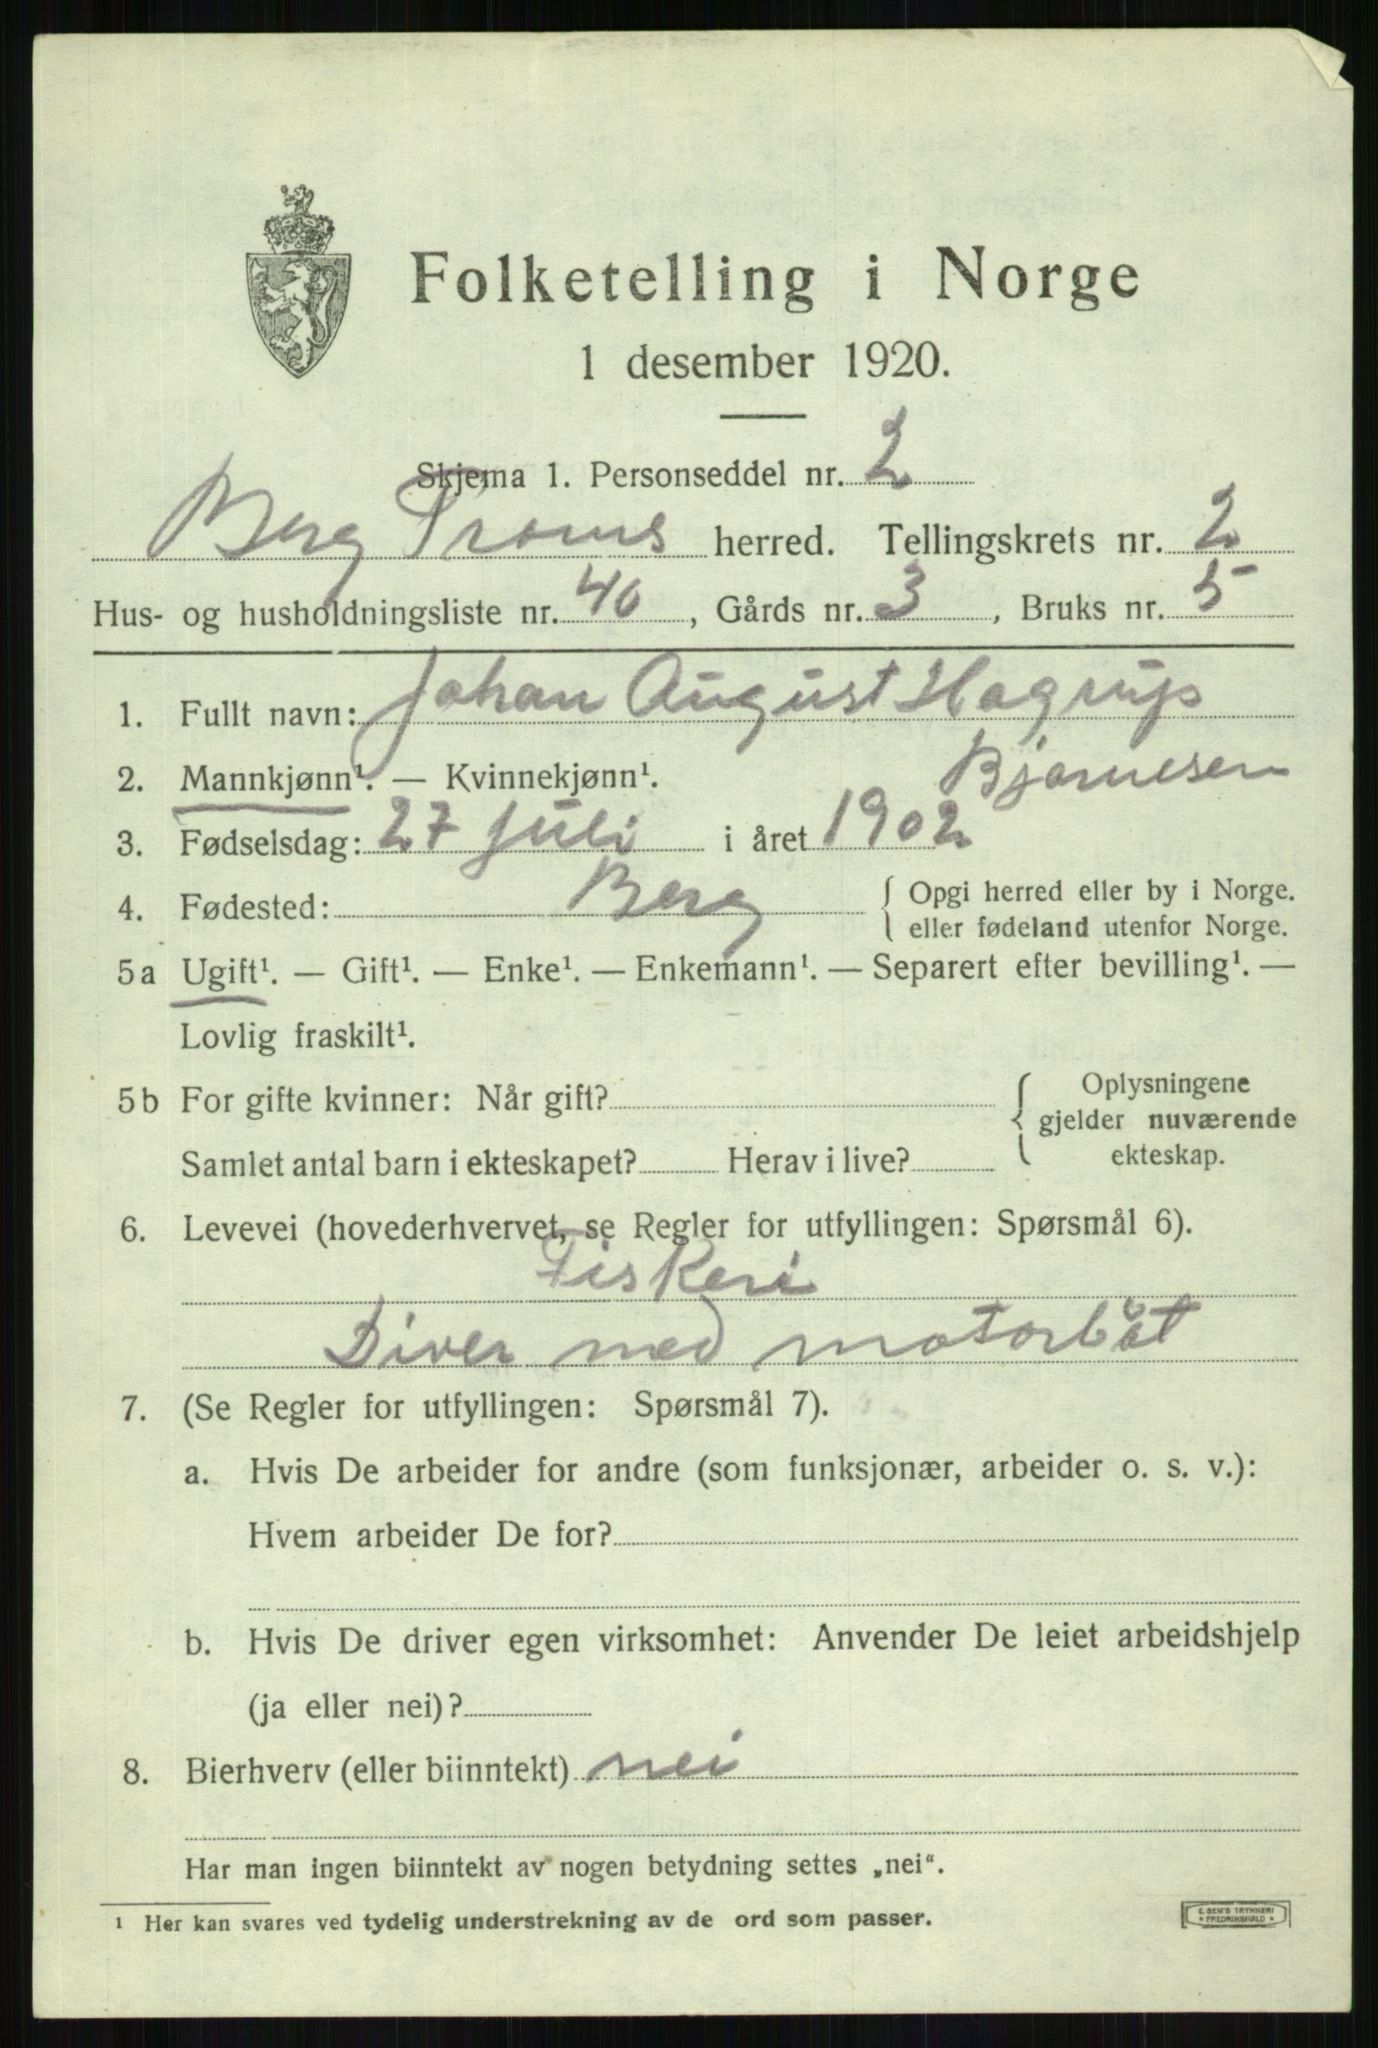 Folketelling i Norge
1 desember 1920.
Skjema 1. Personseddel nr. 2
Berg Troms herred. Tellingskrets nr. 2
Hus- og husholdningsliste nr. 40, Gårds nr. 3, Bruks nr. 5
1. Fullt navn: Johan August Hagrup
Bjørnesen
2. Mannkjønn¹. — Kvinnekjønn¹.
3. Fødselsdag: 27 juli i året 1902
4. Fødested: Berg { Opgi herred eller by i Norge.
eller fødeland utenfor Norge.
5a Ugift¹. — Gift¹. — Enke¹. — Enkemann¹. — Separert efter bevilling¹. —
Lovlig fraskilt¹.
5b For gifte kvinner: Når gift? { Oplysningene
gjelder nuværende
Samlet antal barn i ekteskapet? Herav i live? ekteskap.
6. Levevei (hovederhvervet, se Regler for utfyllingen: Spørsmål 6).
Fiskeri
Driver med motorbåt
7. (Se Regler for utfyllingen: Spørsmål 7).
a. Hvis De arbeider for andre (som funksjonær, arbeider o. s. v.):
Hvem arbeider De for?
b. Hvis De driver egen virksomhet: Anvender De leiet arbeidshjelp
(ja eller nei)?
8. Bierhverv (eller biinntekt) nei
Har man ingen biinntekt av nogen betydning settes „nei“.
¹ Her kan svares ved tydelig understrekning av de ord som passer.
E. SEM'S TRYKKERI
* FREDRIKSHALD *